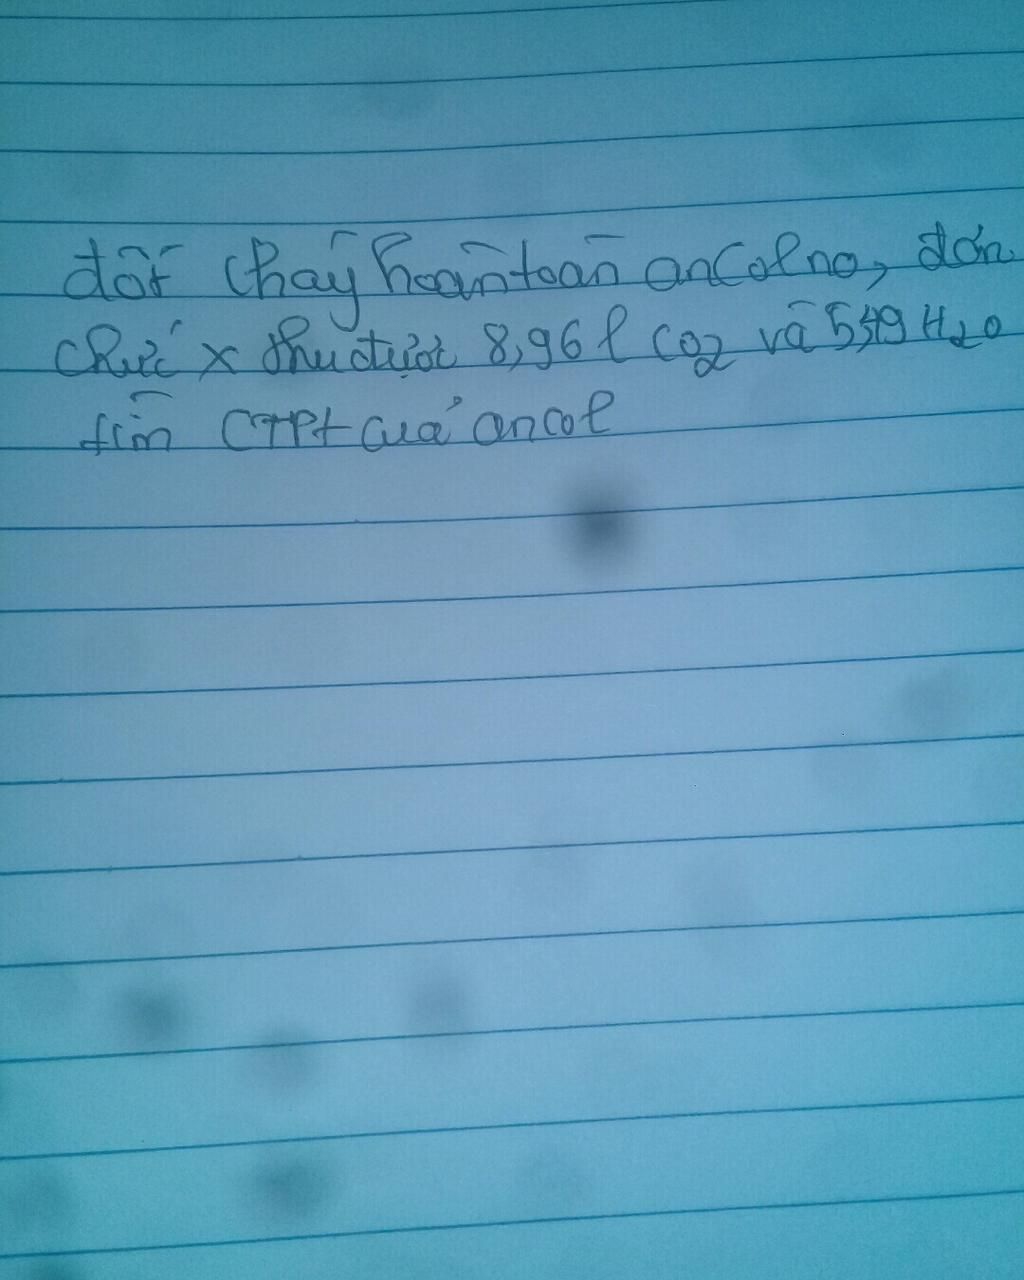 đốt cháy hoàn toàn ancol no, đơn
chức x thu được 8,96 l CO2 và 5,4g H2O
tìm CTPt của ancol